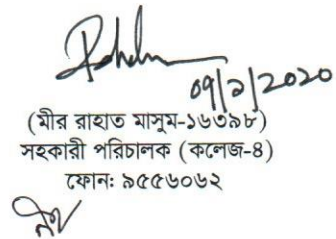 ০৭/১/২০২০
(মীর রাহাত মাসুম-১৬৩৯৮)
সহকারী পরিচালক (কলেজ-৪)
ফোন: ৯৫৫৬০৬২